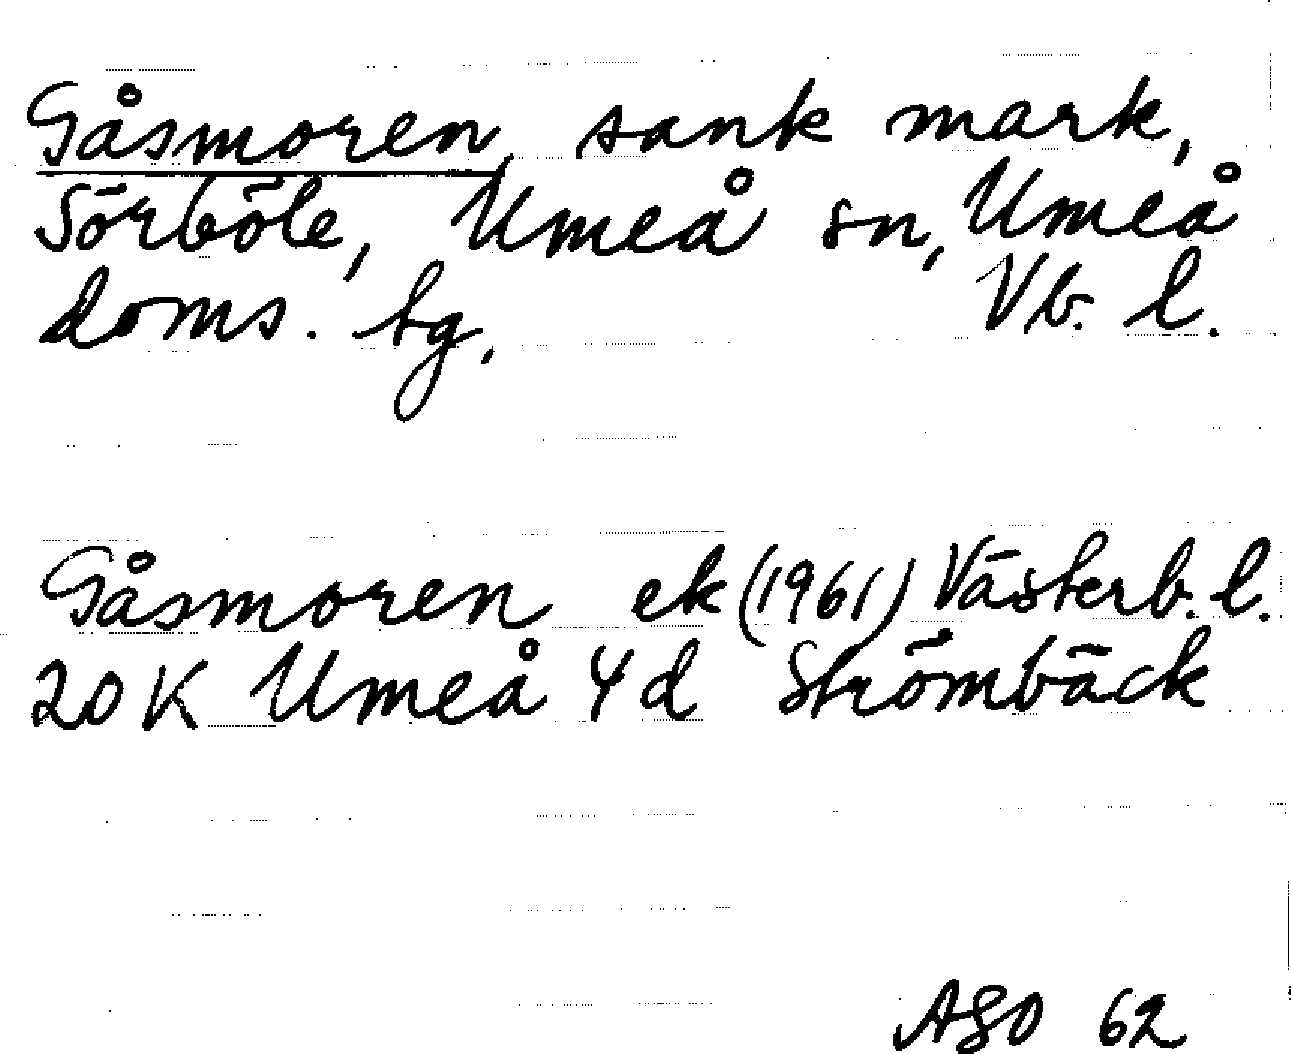 Gåsmoren, sank mark,
Sörböle, Umeå sn, Umeå
doms. tg, Vb. l.
Gåsmoren ek (1961) Västerb. l.
20 K Umeå 4 d Strömbäck
ASO 62